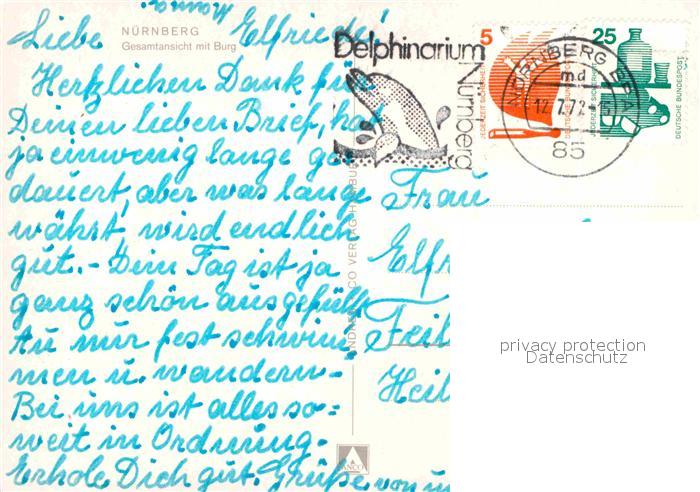 NÜRNBERG
Gesamtansicht mit Burg
Liebe Elfriede!
Herzlichen Dank für
Deinen lieben Brief, hat
ja einwenig lange ge-
dauert, aber was lange
währt, wird endlich
gut.- Dein Tag ist ja
ganz schön ausgefüllt.
Tu nur fest schwim-
men u. wandern-
Bei uns ist alles so=
weit in Ordnung-
Erhole Dich gut. Grüße von
Delphinarium
Nürnberg
5
25
JEDERZEIT SICHERHEIT
DEUTSCHE BUNDESPOST
NÜRNBERG
md
12.7.72
85
Frau
Elfr
Feil
Heil
privacy protection
Datenschutz
ANCO